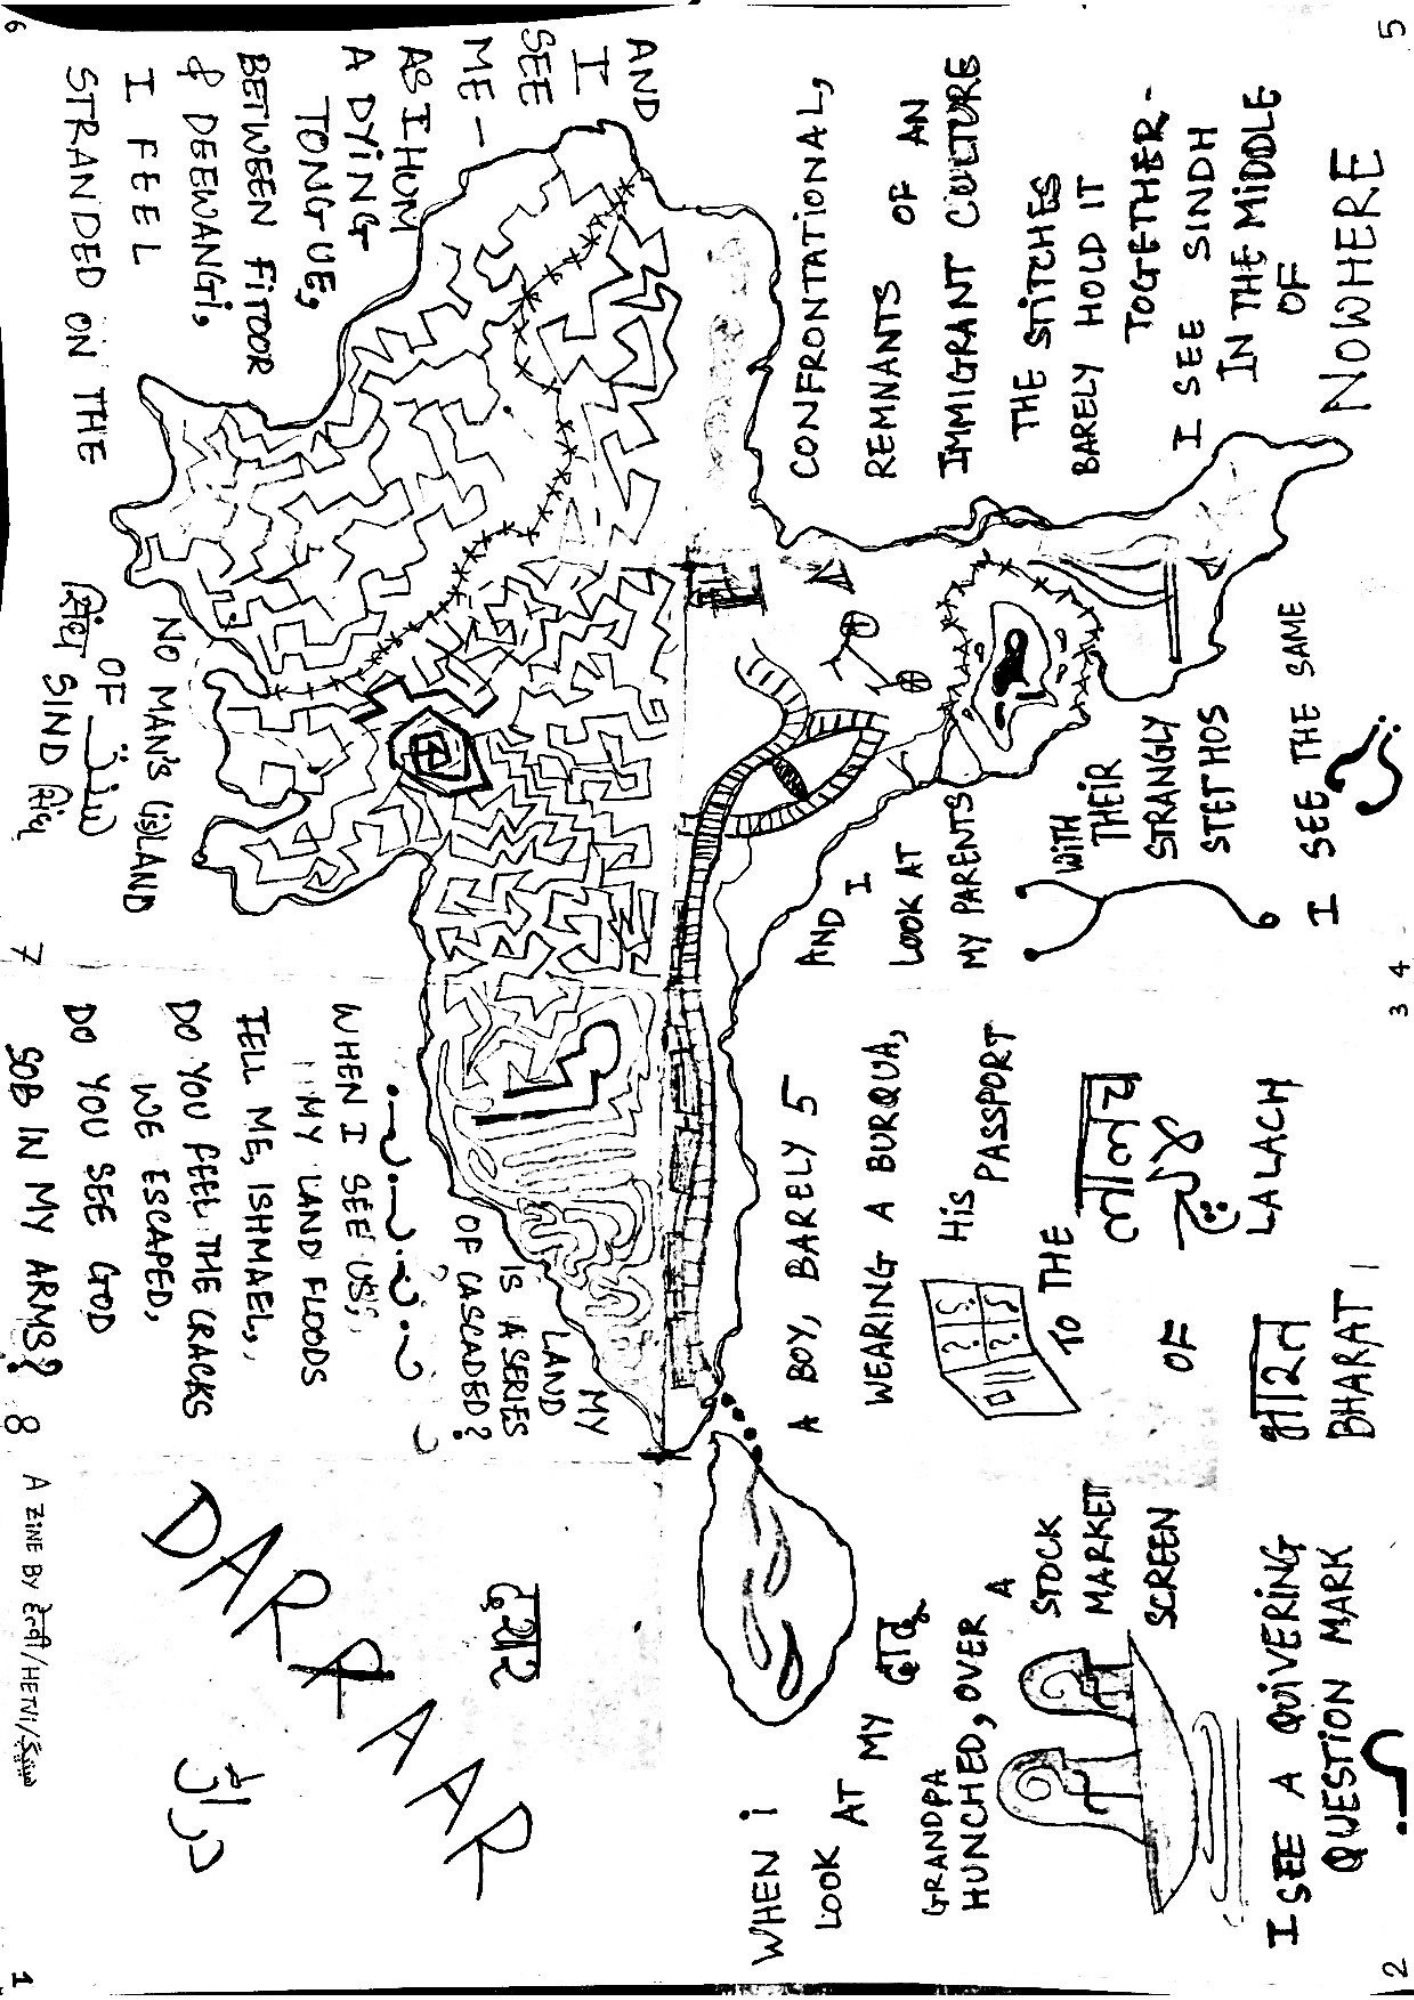 1
DARRAAR
दरार
دراڑ
A ZINE BY हेत्वी/HETVI/
2
WHEN I
LOOK AT MY दादु
GRANDPA
HUNCHED, OVER A
STOCK
MARKET
SCREEN
I SEE A QUIVERING
QUESTION MARK
3
A BOY, BARELY 5
WEARING A BURQUA,
HIS
PASSPORT
TO THE
लालच
لالچ
LALACH
OF
भारत
BHARAT,
4
AND I
LOOK AT
MY PARENTS
WITH
THEIR
STRANGLY
STETHOS
I SEE THE SAME
5
CONFRONTATIONAL,
REMNANTS OF AN
IMMIGRANT CULTURE
THE STITCHES
BARELY HOLD IT
TOGETHER-
I SEE SINDH
IN THE MIDDLE
OF
NOWHERE
6
AND
I
SEE
ME-
AS I HUM
A DYING
TONGUE,
BETWEEN FITOOR
& DEEWANGI,
I FEEL
STRANDED ON THE
7
NO MAN'S (IS)LAND
OF
SIND
8
MY
LAND
IS A SERIES
OF CASCADED?
WHEN I SEE US,
MY LAND FLOODS
TELL ME, ISHMAEL,
DO YOU FEEL THE CRACKS
WE ESCAPED,
DO YOU SEE GOD
SOB IN MY ARMS?